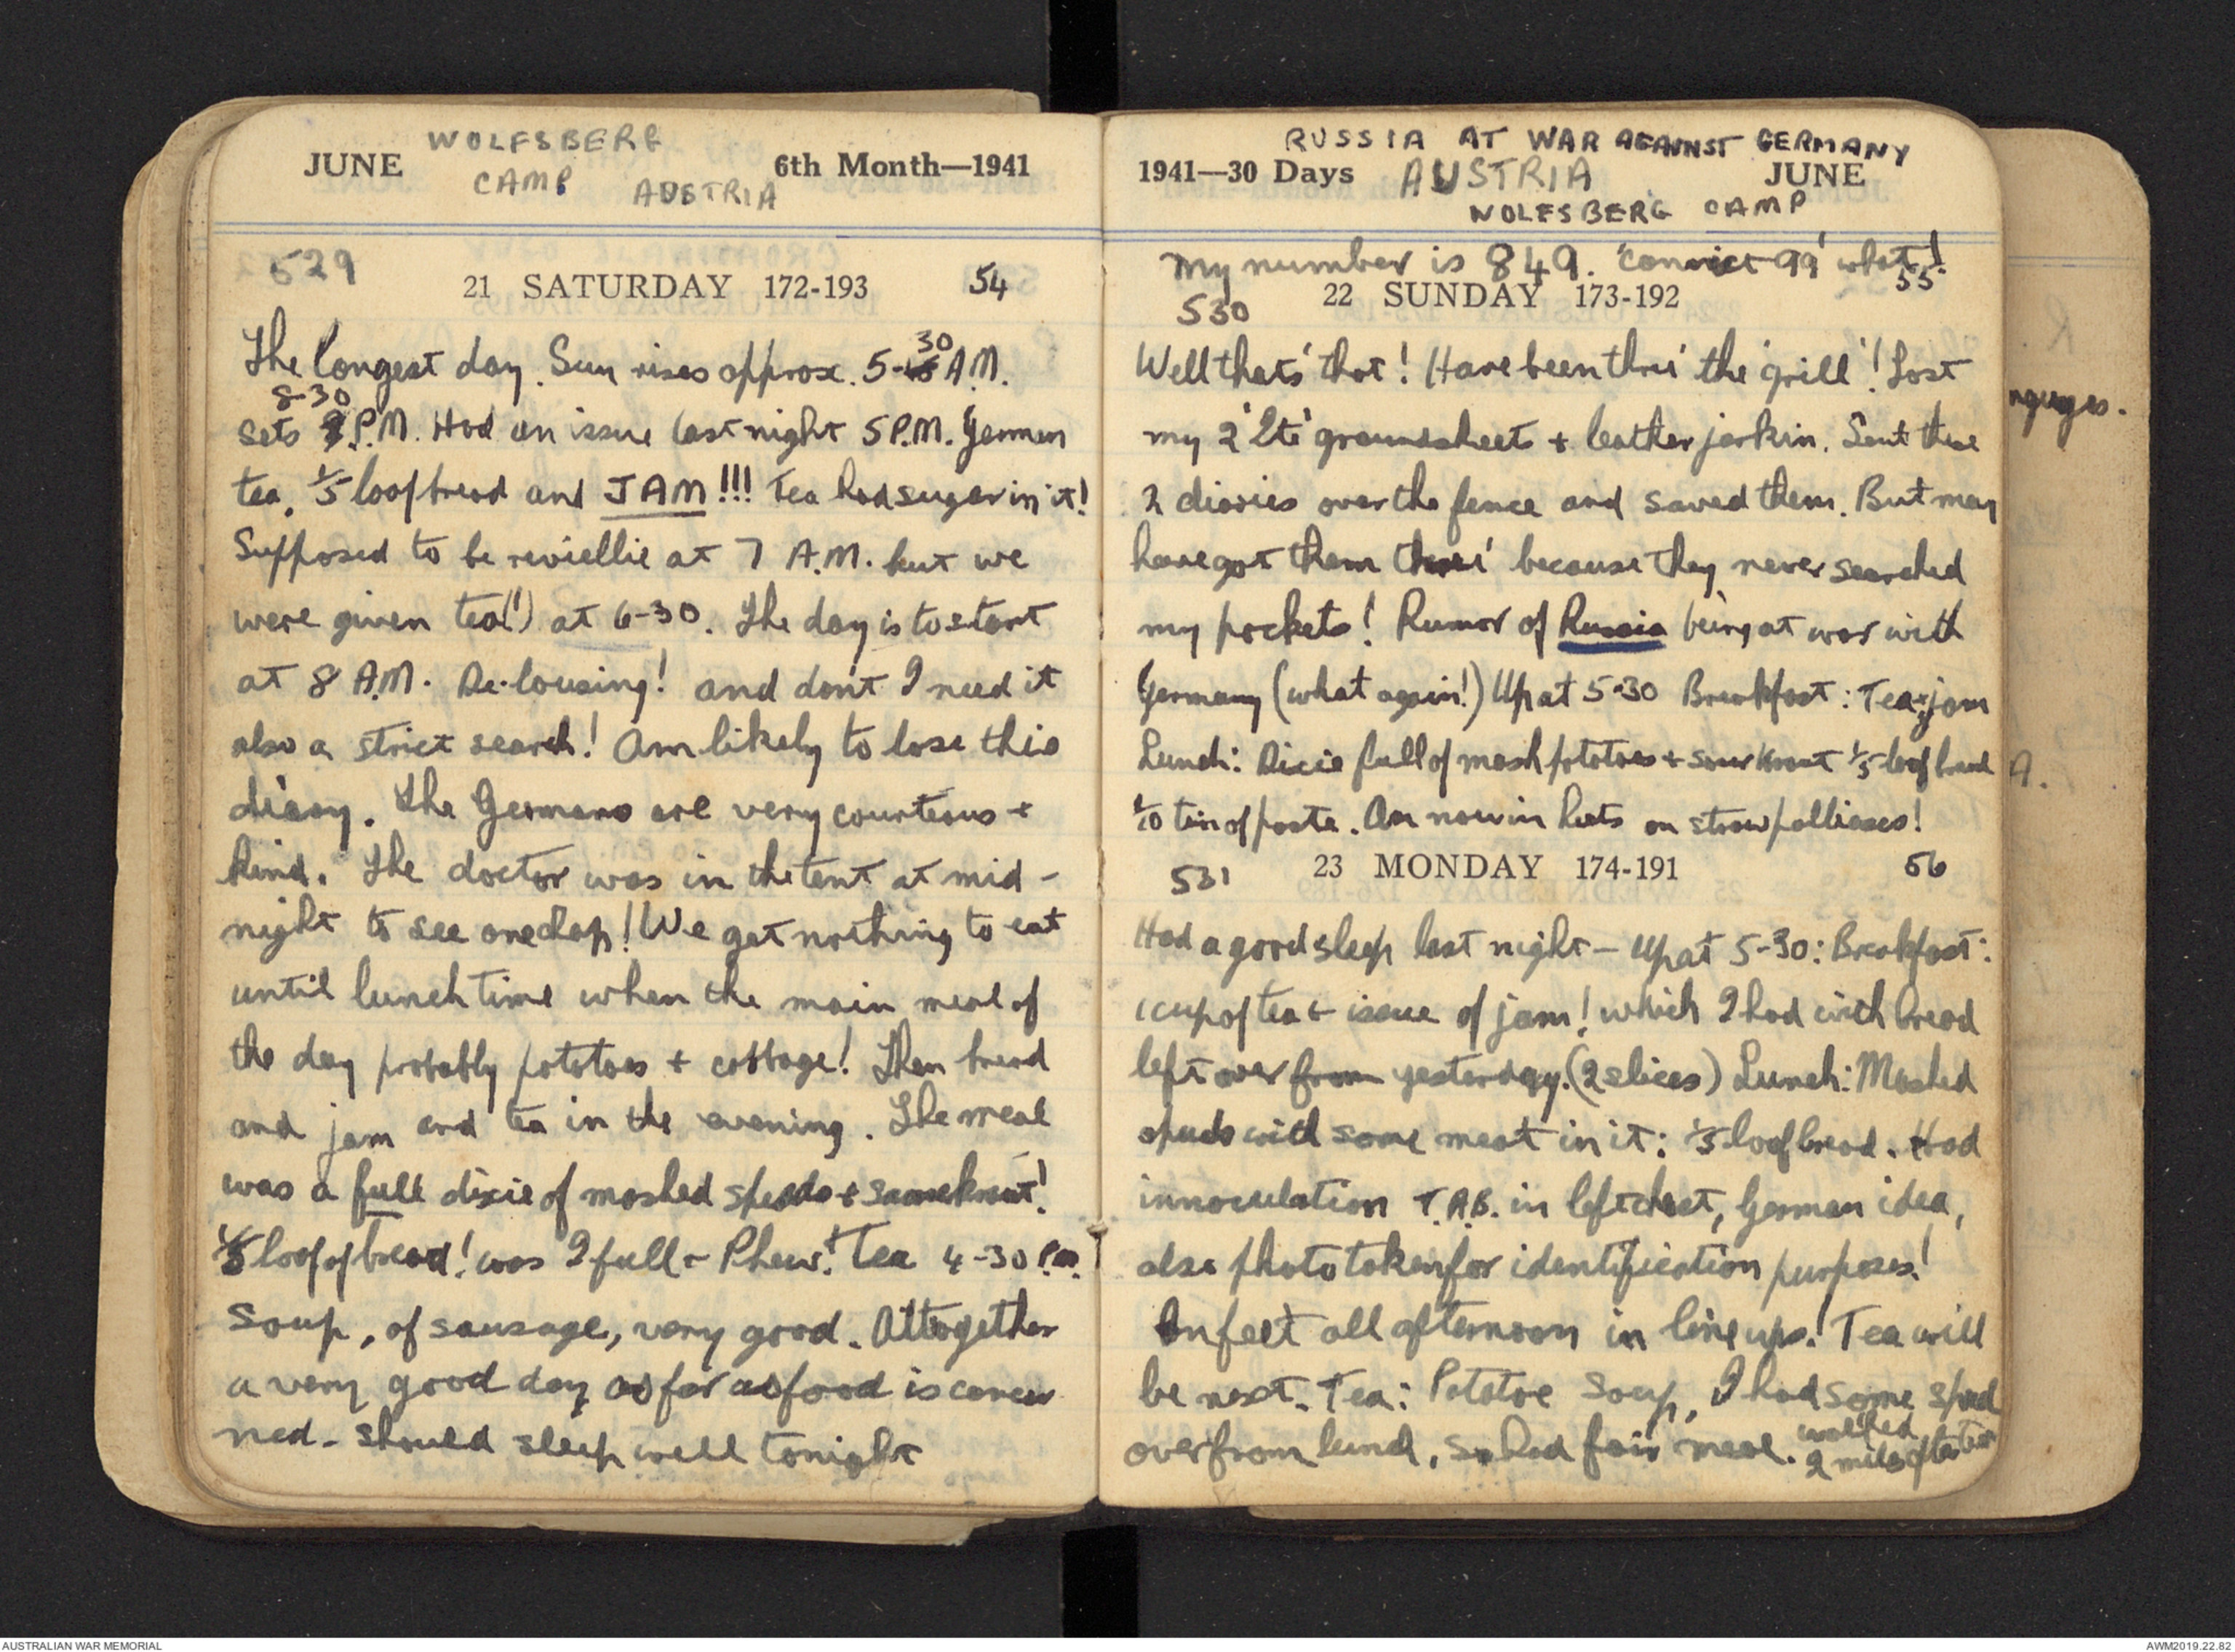 WOLFSBERG
JUNE 6th Month—1941
CAMP AUSTRIA
529
21 SATURDAY 172-193 54
The longest day. Sun rises approx. 5-30 A.M.
8-30
sets P.M. Had an issue last night 5 P.M. German
tea, 1/5 loaf bread and JAM!!! Tea had sugar in it!
Supposed to be reviellie at 7 A.M. but we
were given tea(!) at 6-30. The day is to start
at 8 A.M. De-lousing! and dont I need it
also a strict search! Am likely to lose this
diary. The Germans are very courteous +
kind. The doctor was in the tent at mid-
night to see one chap! We get nothing to eat
until lunch time when the main meal of
the day probably potatoes + cabbage! Then bread
and jam and tea in the evening. The meal
was a full dixie of mashed spuds + sauerkraut!
1/5 loaf of bread! was I full - Phew! Tea 4-30 P.M.
Soup, of sausage, very good. Altogether
a very good day as far as food is concer
ned - should sleep well tonight
RUSSIA AT WAR AGAINST GERMANY
1941—30 Days AUSTRIA JUNE
WOLFSBERG CAMP
My number is 849. 'convict 99' what!
55
530 22 SUNDAY 173-192
Well thats' that! Have been thru' the 'grill'! Lost
my 2 groundsheets + leather jerkin. Sent these
2 diaries over the fence and saved them. But may
have got them thru' because they never searched
my pockets! Rumor of Russia being at war with
Germany (what again!) Up at 5-30 Breakfast: Tea + jam
Lunch: Dixie full of mash potatoes + sour krout 1/5 loaf bread
1/10 tin of paste. Am now in huts on straw palliases!
531 23 MONDAY 174-191 56
Had a good sleep last night - Up at 5-30: Breakfast:
1 cup of tea + issue of jam! which I had with bread
left over from yesterday. (2 slices) Lunch: Mashed
spuds with some meat in it: 1/5 loaf bread. Had
innoculation T.A.B. in left chest, German idea,
also photo taken for identification purposes!
On feet all afternoon in line ups! Tea will
be next. Tea: Potatoe Soup, I had some spud
over from lunch, so had fair meal. walked
2 miles after tea
nguages.
A.
AUSTRALIAN WAR MEMORIAL
AWM2019.22.82